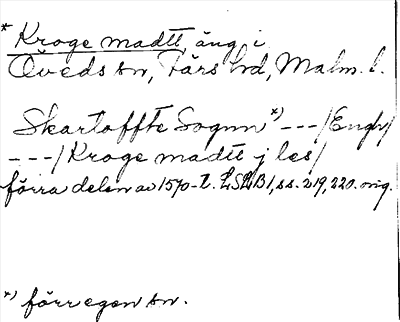 * Kroge madtt, äng i
Öveds sn, Färs hd, Malm. l.
Skartoffte Sognn *) --- /Engh/
--- / Kroge madtt j les /
förra delen av 1570-t. LSLB 1, ss. 219, 220. orig.
*) förr egen sn.